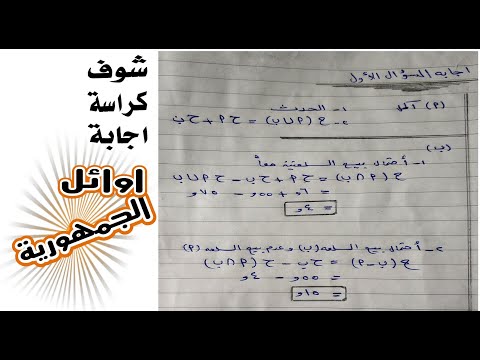 شوف
كراسة
اجابة
اوائل
الجمهورية
اجابه السؤال الأول
(م) أكمل
١- الحدث
٢- ح (م ∪ ب) = ح م + ح ب
(ب)
١- أحتمال بيع السلعتين معاً
ح (م ∩ ب) = ح م + ح ب - ح م ∪ ب
= ٦و + ٥٥و - ٧٥و
= ٤و
٢- أحتمال بيع السلعه (ب) وعدم بيع السلعه (م)
ح (ب - م) = ح ب - ح (م ∩ ب)
= ٥٥و - ٤و
= ١٥و